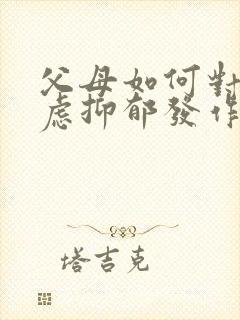 父母如何對
慮抑郁發作
塔吉克